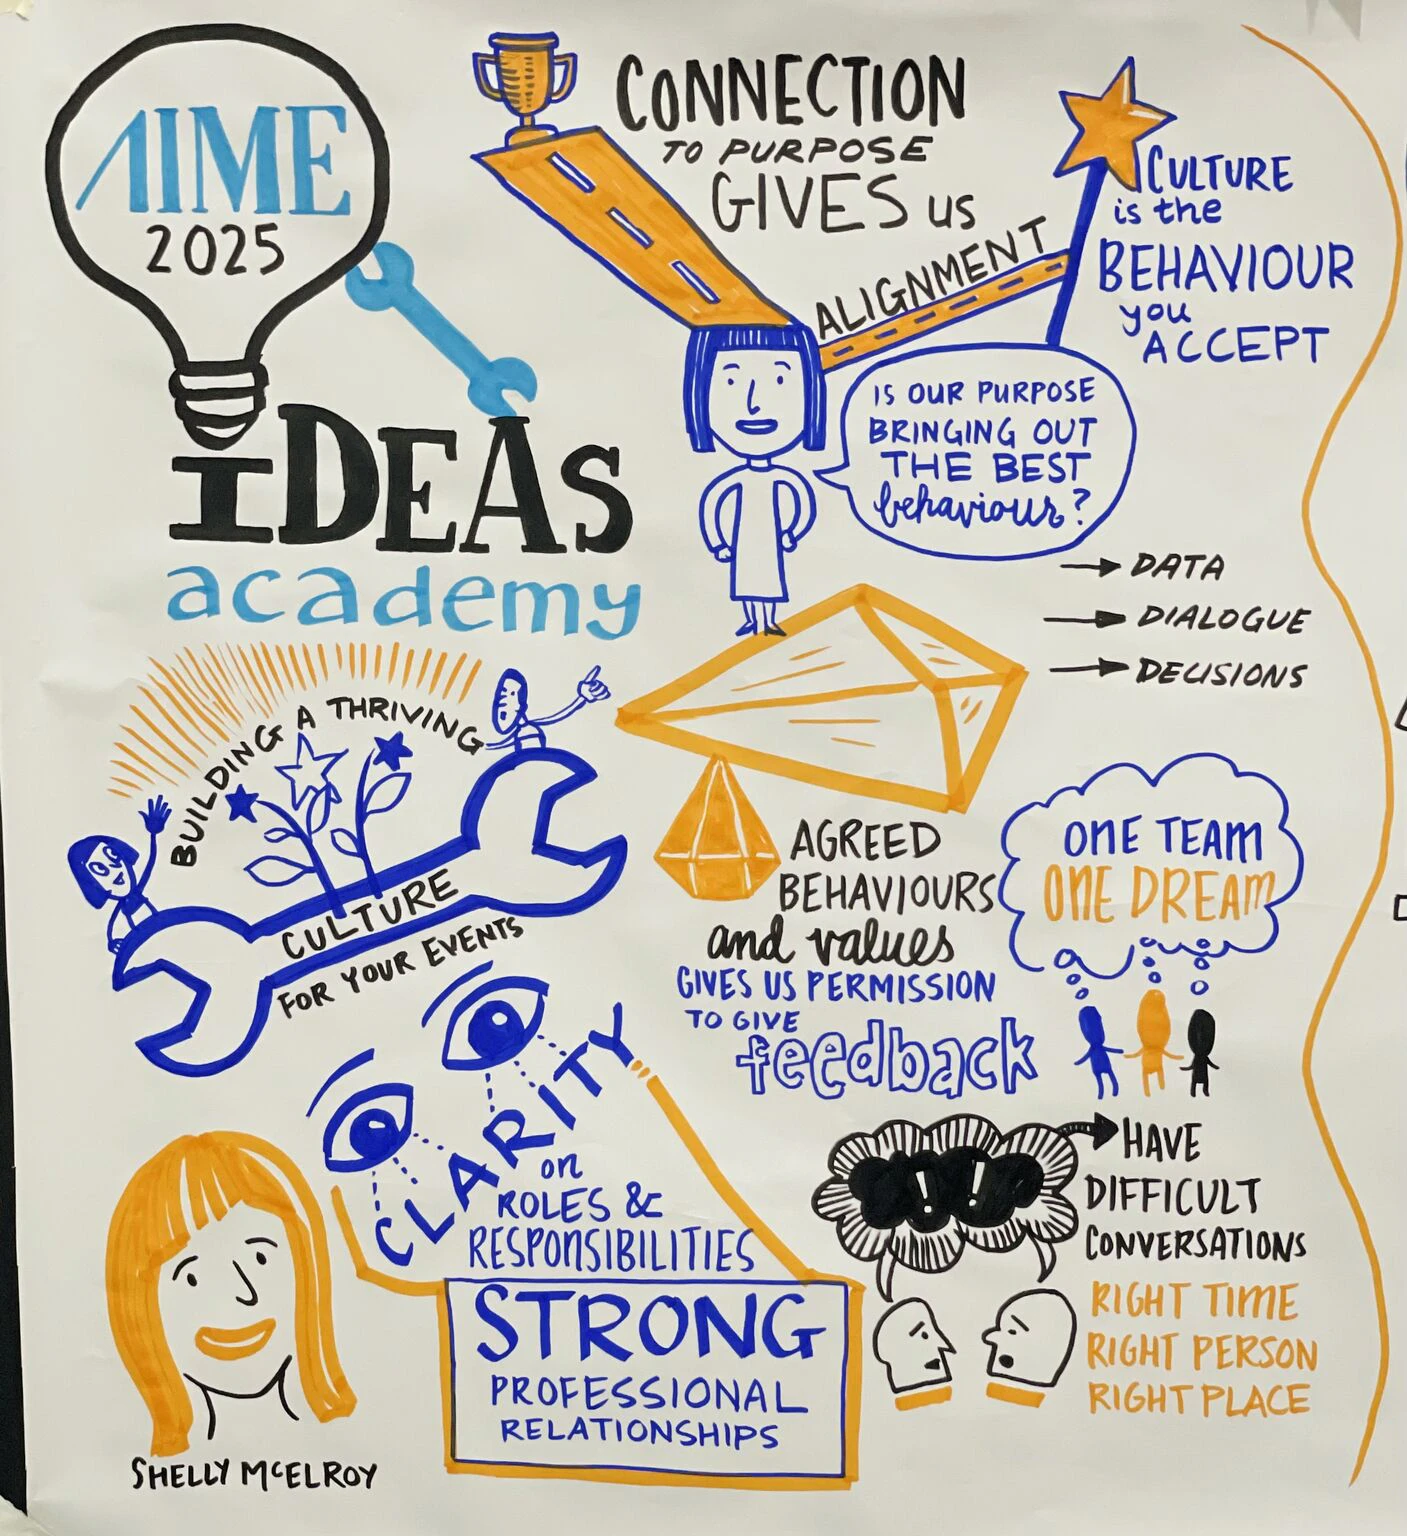 AIME
2025
iDEAS
academy
BUILDING A THRIVING
CULTURE
FOR YOUR EVENTS
CONNECTION
TO PURPOSE
GIVES us
ALIGNMENT
CULTURE
is the
BEHAVIOUR
you
ACCEPT
IS OUR PURPOSE
BRINGING OUT
THE BEST
behaviour?
→ DATA
→ DIALOGUE
→ DECISIONS
AGREED
BEHAVIOURS
and values
GIVES US PERMISSION
TO GIVE
feedback
ONE TEAM
ONE DREAM
CLARITY
on
ROLES &
RESPONSIBILITIES
STRONG
PROFESSIONAL
RELATIONSHIPS
!!
HAVE
DIFFICULT
CONVERSATIONS
RIGHT TIME
RIGHT PERSON
RIGHT PLACE
SHELLY McELROY